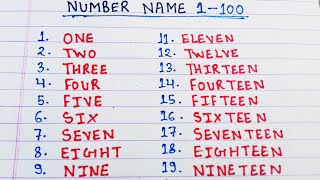 NUMBER NAME 1-100
1. ONE
2. TWO
3. THREE
4. FOUR
5. FIVE
6. SIX
7. SEVEN
8. EIGHT
9. NINE
11. ELEVEN
12. TWELVE
13. THIRTEEN
14. FOURTEEN
15. FIFTEEN
16. SIXTEEN
17. SEVENTEEN
18. EIGHTEEN
19. NINETEEN